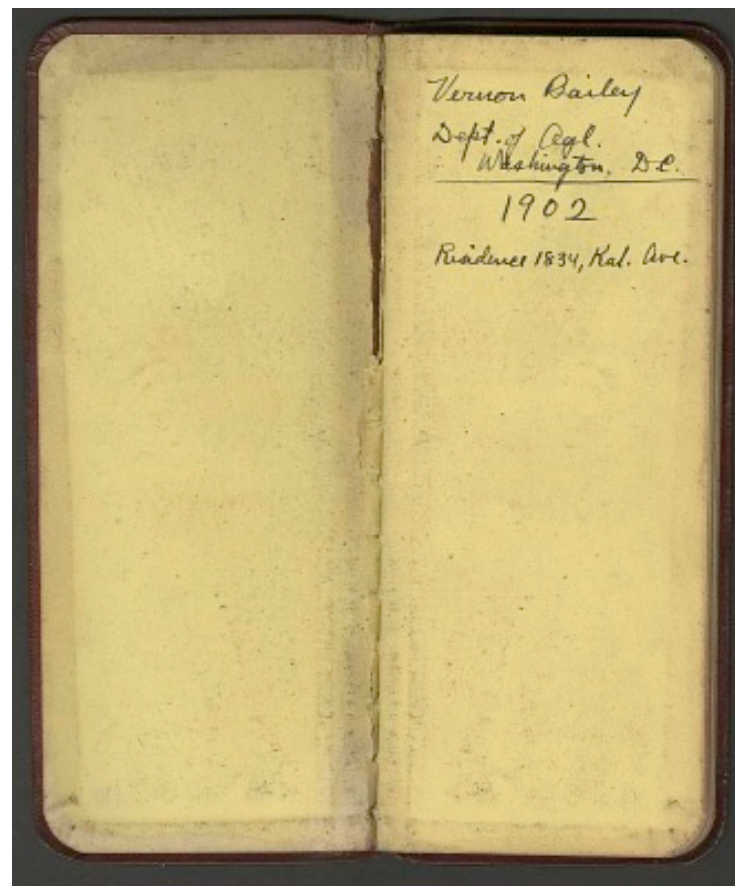 Vernon Bailey
Dept. of Agl.
Washington, D.C.
1902
Residence 1834, Kal. Ave.